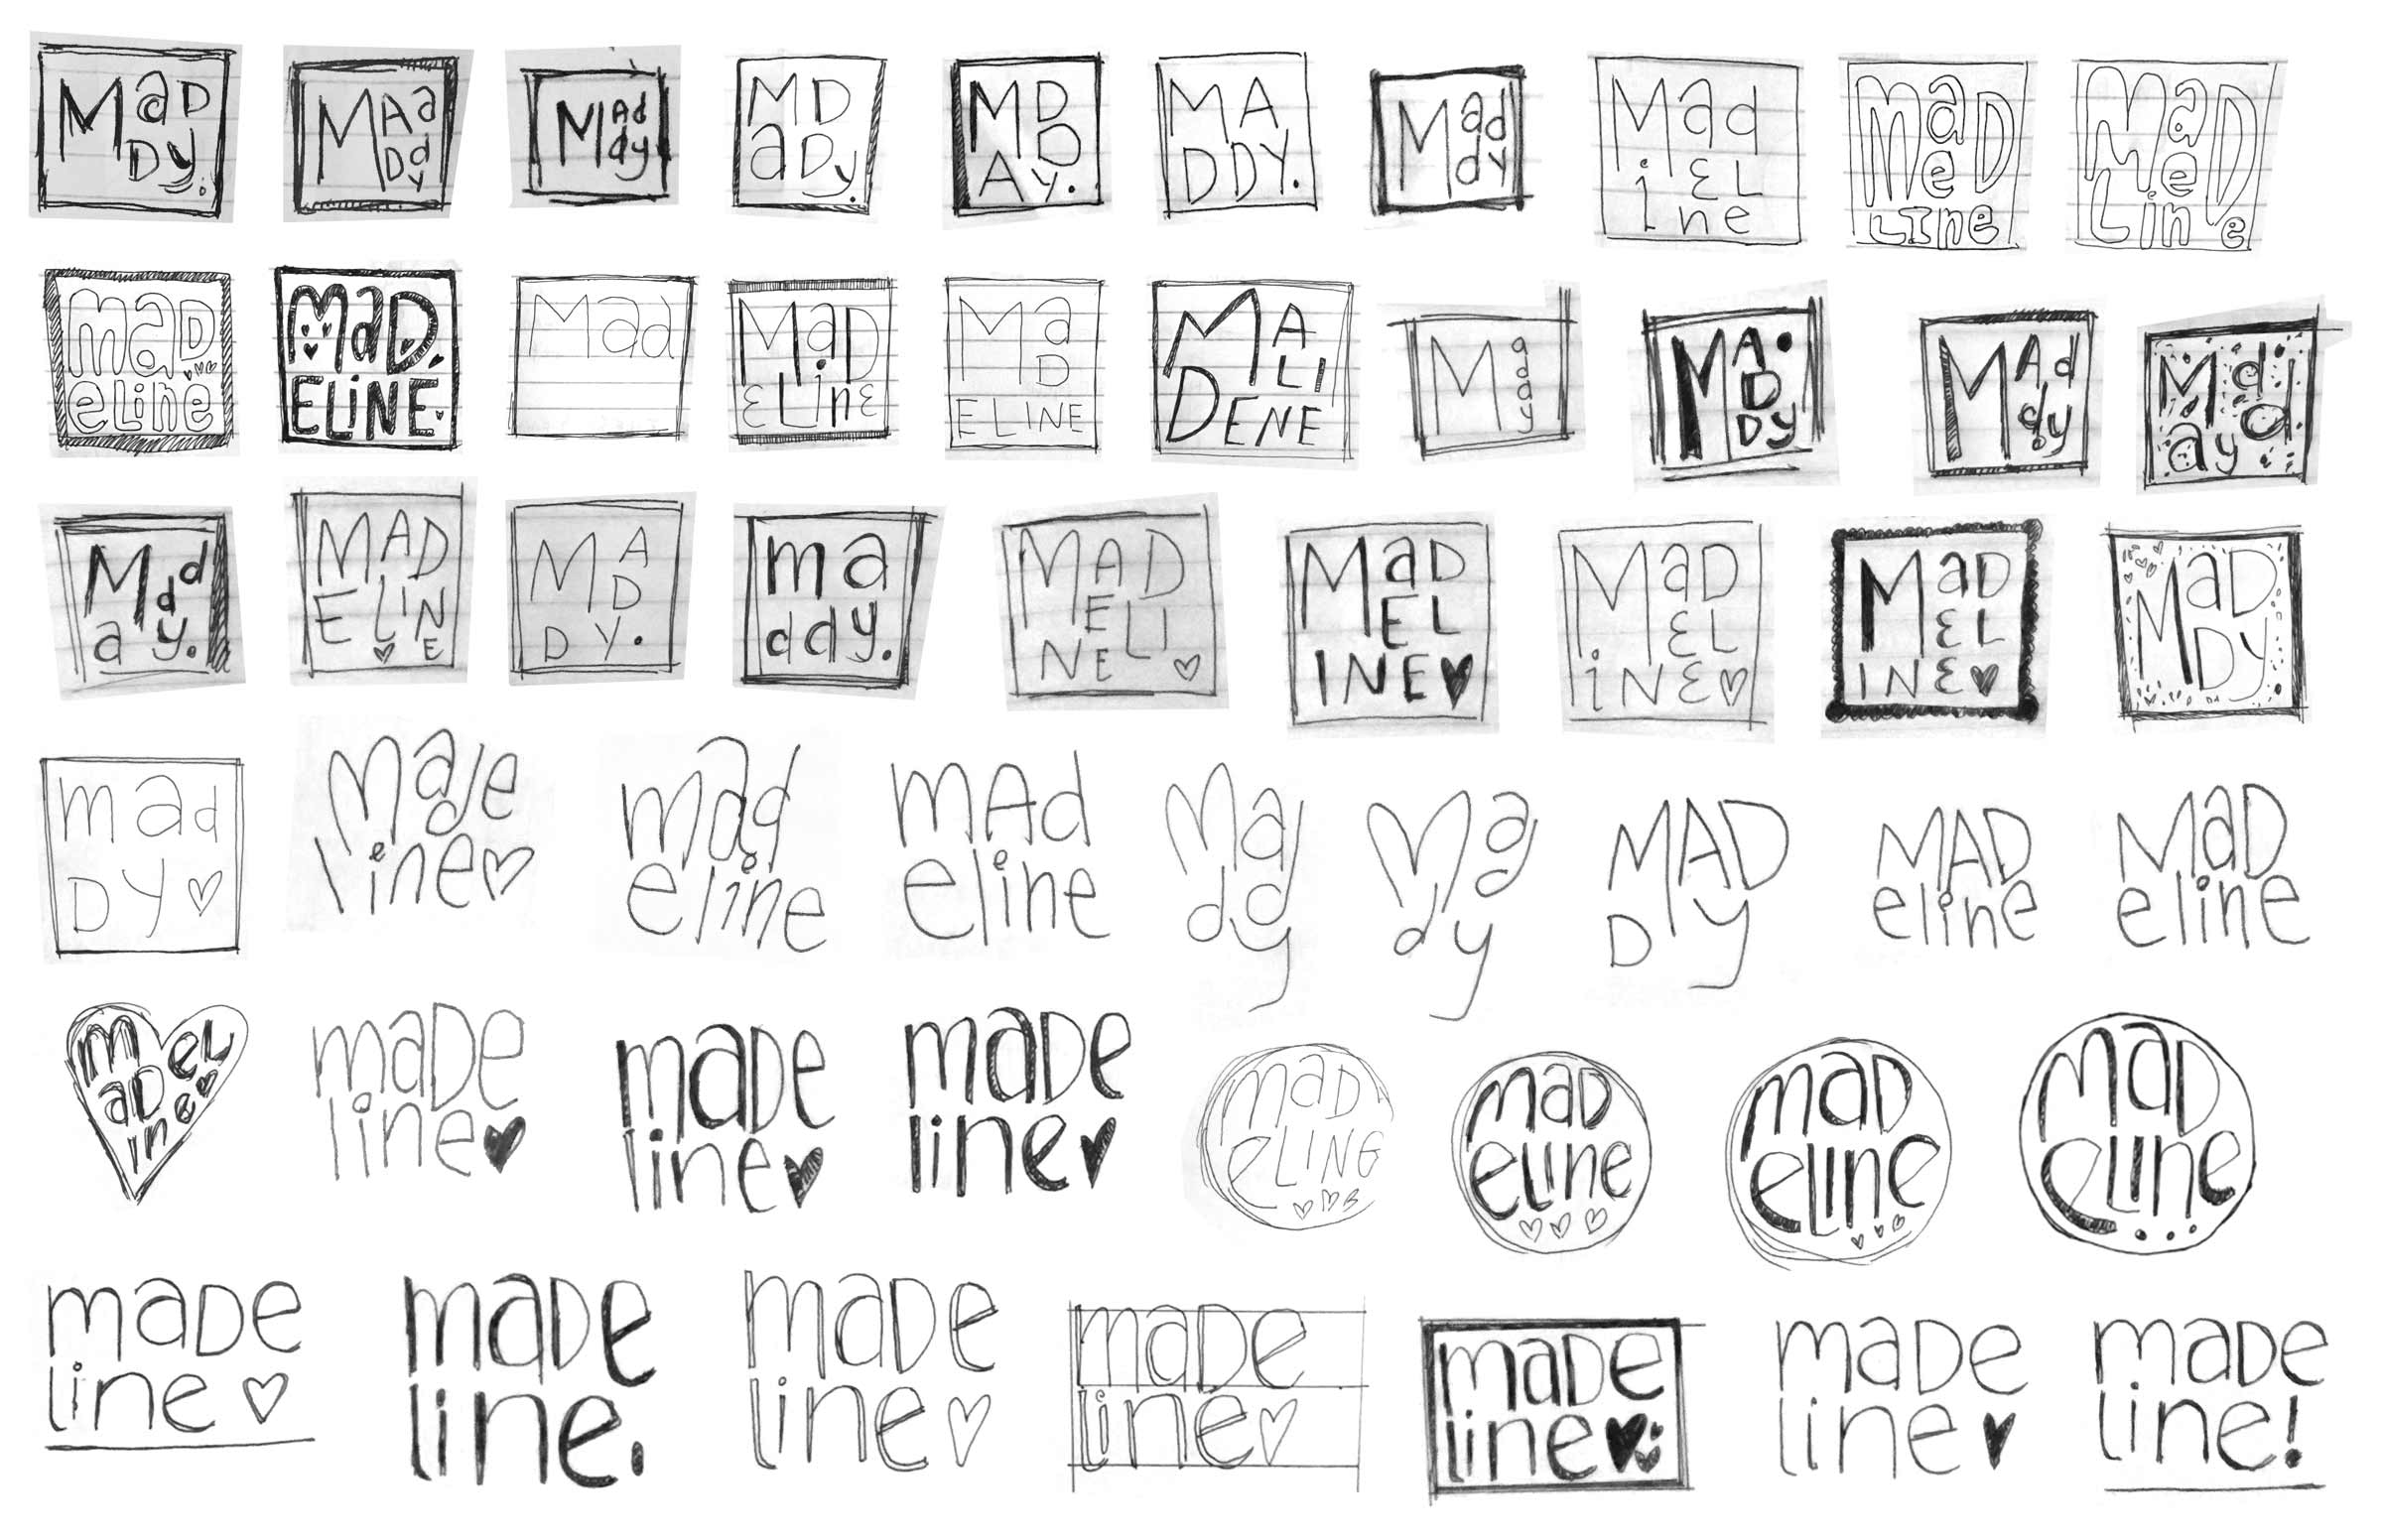 MaD
Dy.
MAa
Dd
y
MAd
dy
MD
aDy.
MD
D
Ay.
MA
DDY.
Mad
dy
Mad
EL
ine
MaD
e
LIne
MaD
e
Line
maD
eLine
MaD.
ELiNE.
Mad
MaD
ELinE
Ma
D
ELINE
MA
LI
DENE
Ma
d
d
y
MA
D
Dy
MAd
dy
Md
d
ay
Md
d
ay.
MAD
ELIN
E
MA
D
DY.
ma
ddy.
MAD
ELI
NE ♡
MaD
EL
INE♥
MaD
EL
iNE♡
MaD
EL
INE♥
MaD
Dy
mad
DY♡
Made
line♡
mad
eline
mAd
eline
Ma
dd
y
Ma
d
dy
MAD
Dy
MAD
eline
MaD
eline
m eL
aD e
in
maDe
line♥
maDe
line♥
maDe
line♥
maD
eLINE
maD
eLine
maD
eLine
maD
eLine
maDe
line ♡
maDe
line.
maDe
line♡
maDe
line♡
maDe
line♥
maDe
line♥
maDe
line!